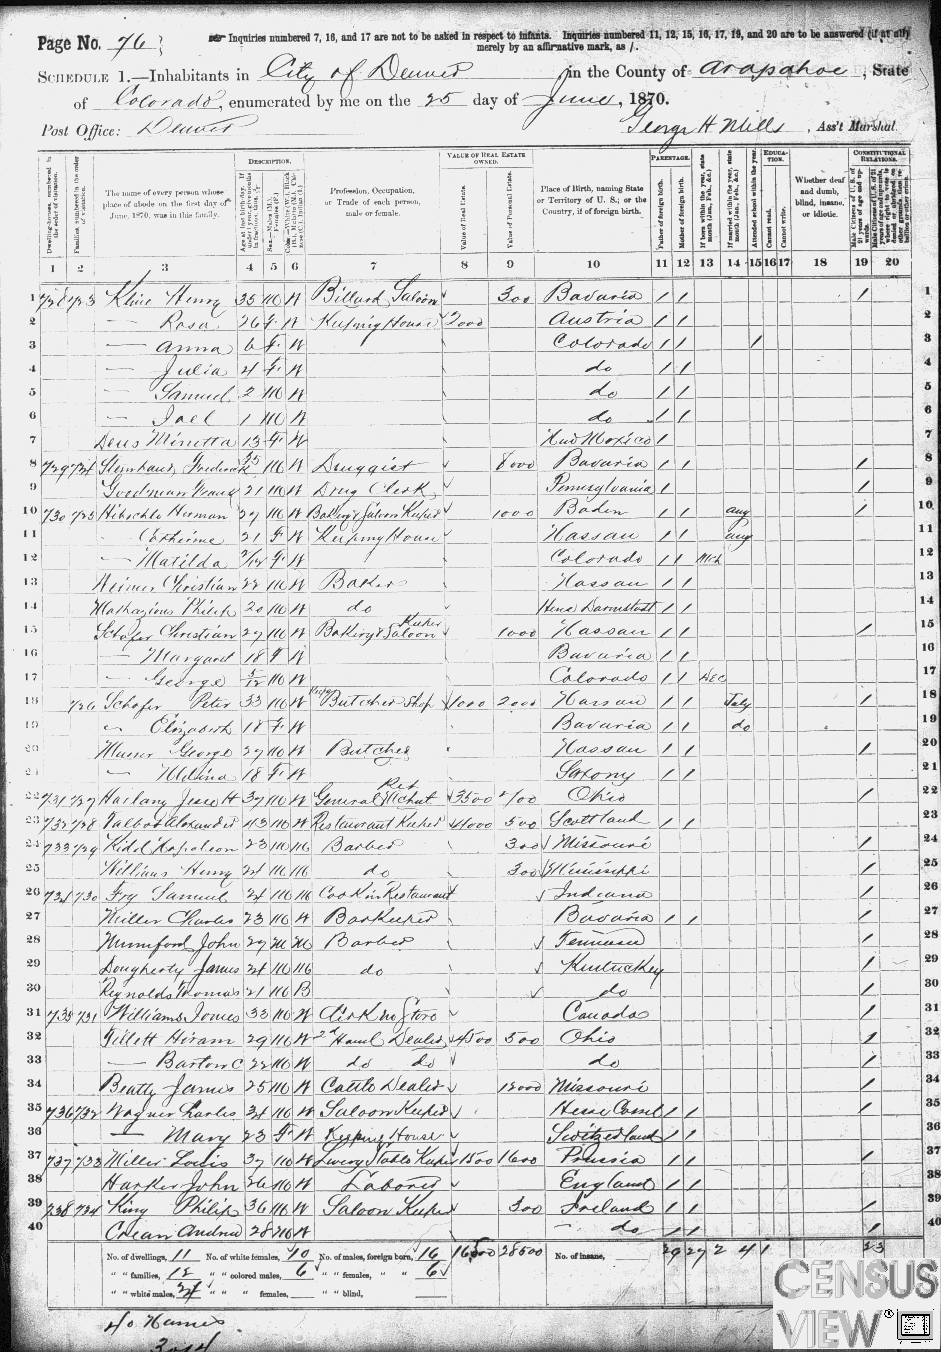 Page No. 76
Inquiries numbered 7, 16, and 17 are not to be asked in respect to infants. Inquiries numbered 11, 12, 15, 16, 17, 19, and 20 are to be answered (if at all) merely by an affirmative mark, as /.
SCHEDULE 1.—Inhabitants in City of Denver, in the County of Arapahoe, State
of Colorado, enumerated by me on the 25 day of June, 1870.
Post Office: Denver George H Mills, Ass't Marshal.
Dwelling-houses, numbered in the order of visitation.
Families, numbered in the order of visitation.
The name of every person whose place of abode on the first day of June, 1870, was in this family.
DESCRIPTION.
Profession, Occupation, or Trade of each person, male or female.
VALUE OF REAL ESTATE OWNED.
Value of Real Estate.
Value of Personal Estate.
Place of Birth, naming State or Territory of U. S.; or the Country, if of foreign birth.
PARENTAGE.
Father of foreign birth.
Mother of foreign birth.
EDUCATION.
Attended school within the year.
Cannot read.
Cannot write.
Whether deaf and dumb, blind, insane, or idiotic.
CONSTITUTIONAL RELATIONS.
1 2 3 4 5 6 7 8 9 10 11 12 13 14 15 16 17 18 19 20
1 728 723 Henry 35 M W Billard Saloon 300 Bavaria / / / 1
2 — Rosa 26 F W Keeping House 2000 Austria / / 2
3 — Anna 6 F W Colorado / / / 3
4 — Julia 4 F W do / / 4
5 — Samuel 2 M W do / / 5
6 — Joel 1 M W do / / 6
7 Minetta 13 F W New Mexico / 7
8 729 724 Frederick 35 M W Druggist 8000 Bavaria / / / 8
9 Goodman 21 M W Drug Clerk Pennsylvania / / 9
10 730 725 Herman 27 M W Bakery & Saloon Keeper 1000 Baden / / Aug / 10
11 — Catherine 21 F W Keeping House Nassau / / Aug 11
12 — Matilda 3/12 F W Colorado / / Mch 12
13 Christian 22 M W Baker Nassau / / 13
14 Philip 20 M W do Hesse Darmstadt / / 14
15 Schafer Christian 27 M W Bakery & Saloon Keeper 1000 Nassau / / / 15
16 — Margaret 18 F W Bavaria / / 16
17 — George M W Colorado / / Dec 17
18 726 Schafer Peter 33 M W Butcher Shop 1000 2000 Nassau / / July / 18
19 " Elizabeth 18 F W Bavaria / / do 19
20 George 27 M W Butcher Nassau / / / 20
21 — Melina 18 F W Saxony / / 21
22 731 727 Jesse H 37 M W General Ret Mchnt 3500 Ohio / 22
23 732 728 Alexander 43 M W Restaurant Keeper 4000 500 Scottland / / 23
24 733 729 Kidd Napoleon 23 M M Barber 300 Missouri / 24
25 Williams Henry 24 M M do 300 Mississippi / 25
26 734 730 Fry Samuel 24 M M Cook in Restaurant Indiana / 26
27 Miller Charles 23 M W Barkeeper Bavaria / / / 27
28 Mumford John 29 M M Barber Tennessee / 28
29 Dougherty James 24 M M do Kentuckey / 29
30 Reynolds Thomas 21 M B do / 30
31 735 731 Williams James 33 M W Canada / 31
32 Gillett Hiram 29 M W 2d Hand Dealer 4500 500 Ohio / 32
33 — Barton C 22 M W do do do / 33
34 Beatty James 25 M W Cattle Dealer 12000 Missouri / 34
35 736 732 Wagner Charles 34 M W Saloon Keeper Hesse Cassel / / / 35
36 — Mary 23 F W Keeping House Switzerland / / 36
37 737 733 Miller Louis 37 M W Livery Stable Keeper 1500 1600 Prussia / / / 37
38 Harker John 26 M W Laborer England / / 38
39 738 734 King Philip 36 M W Saloon Keeper 300 Ireland / / / 39
40 Crean Andrew 28 M W do / / / 40
No. of dwellings, 11 No. of white females, 10 No. of males, foreign born, 16 28500 No. of insane, 29 27 2 4 1 23
" " families, 12 " " colored males, 6 " " females, " " 6
" " white males, 24 " " " females, " " blind,
40 Names
CENSUS
VIEW